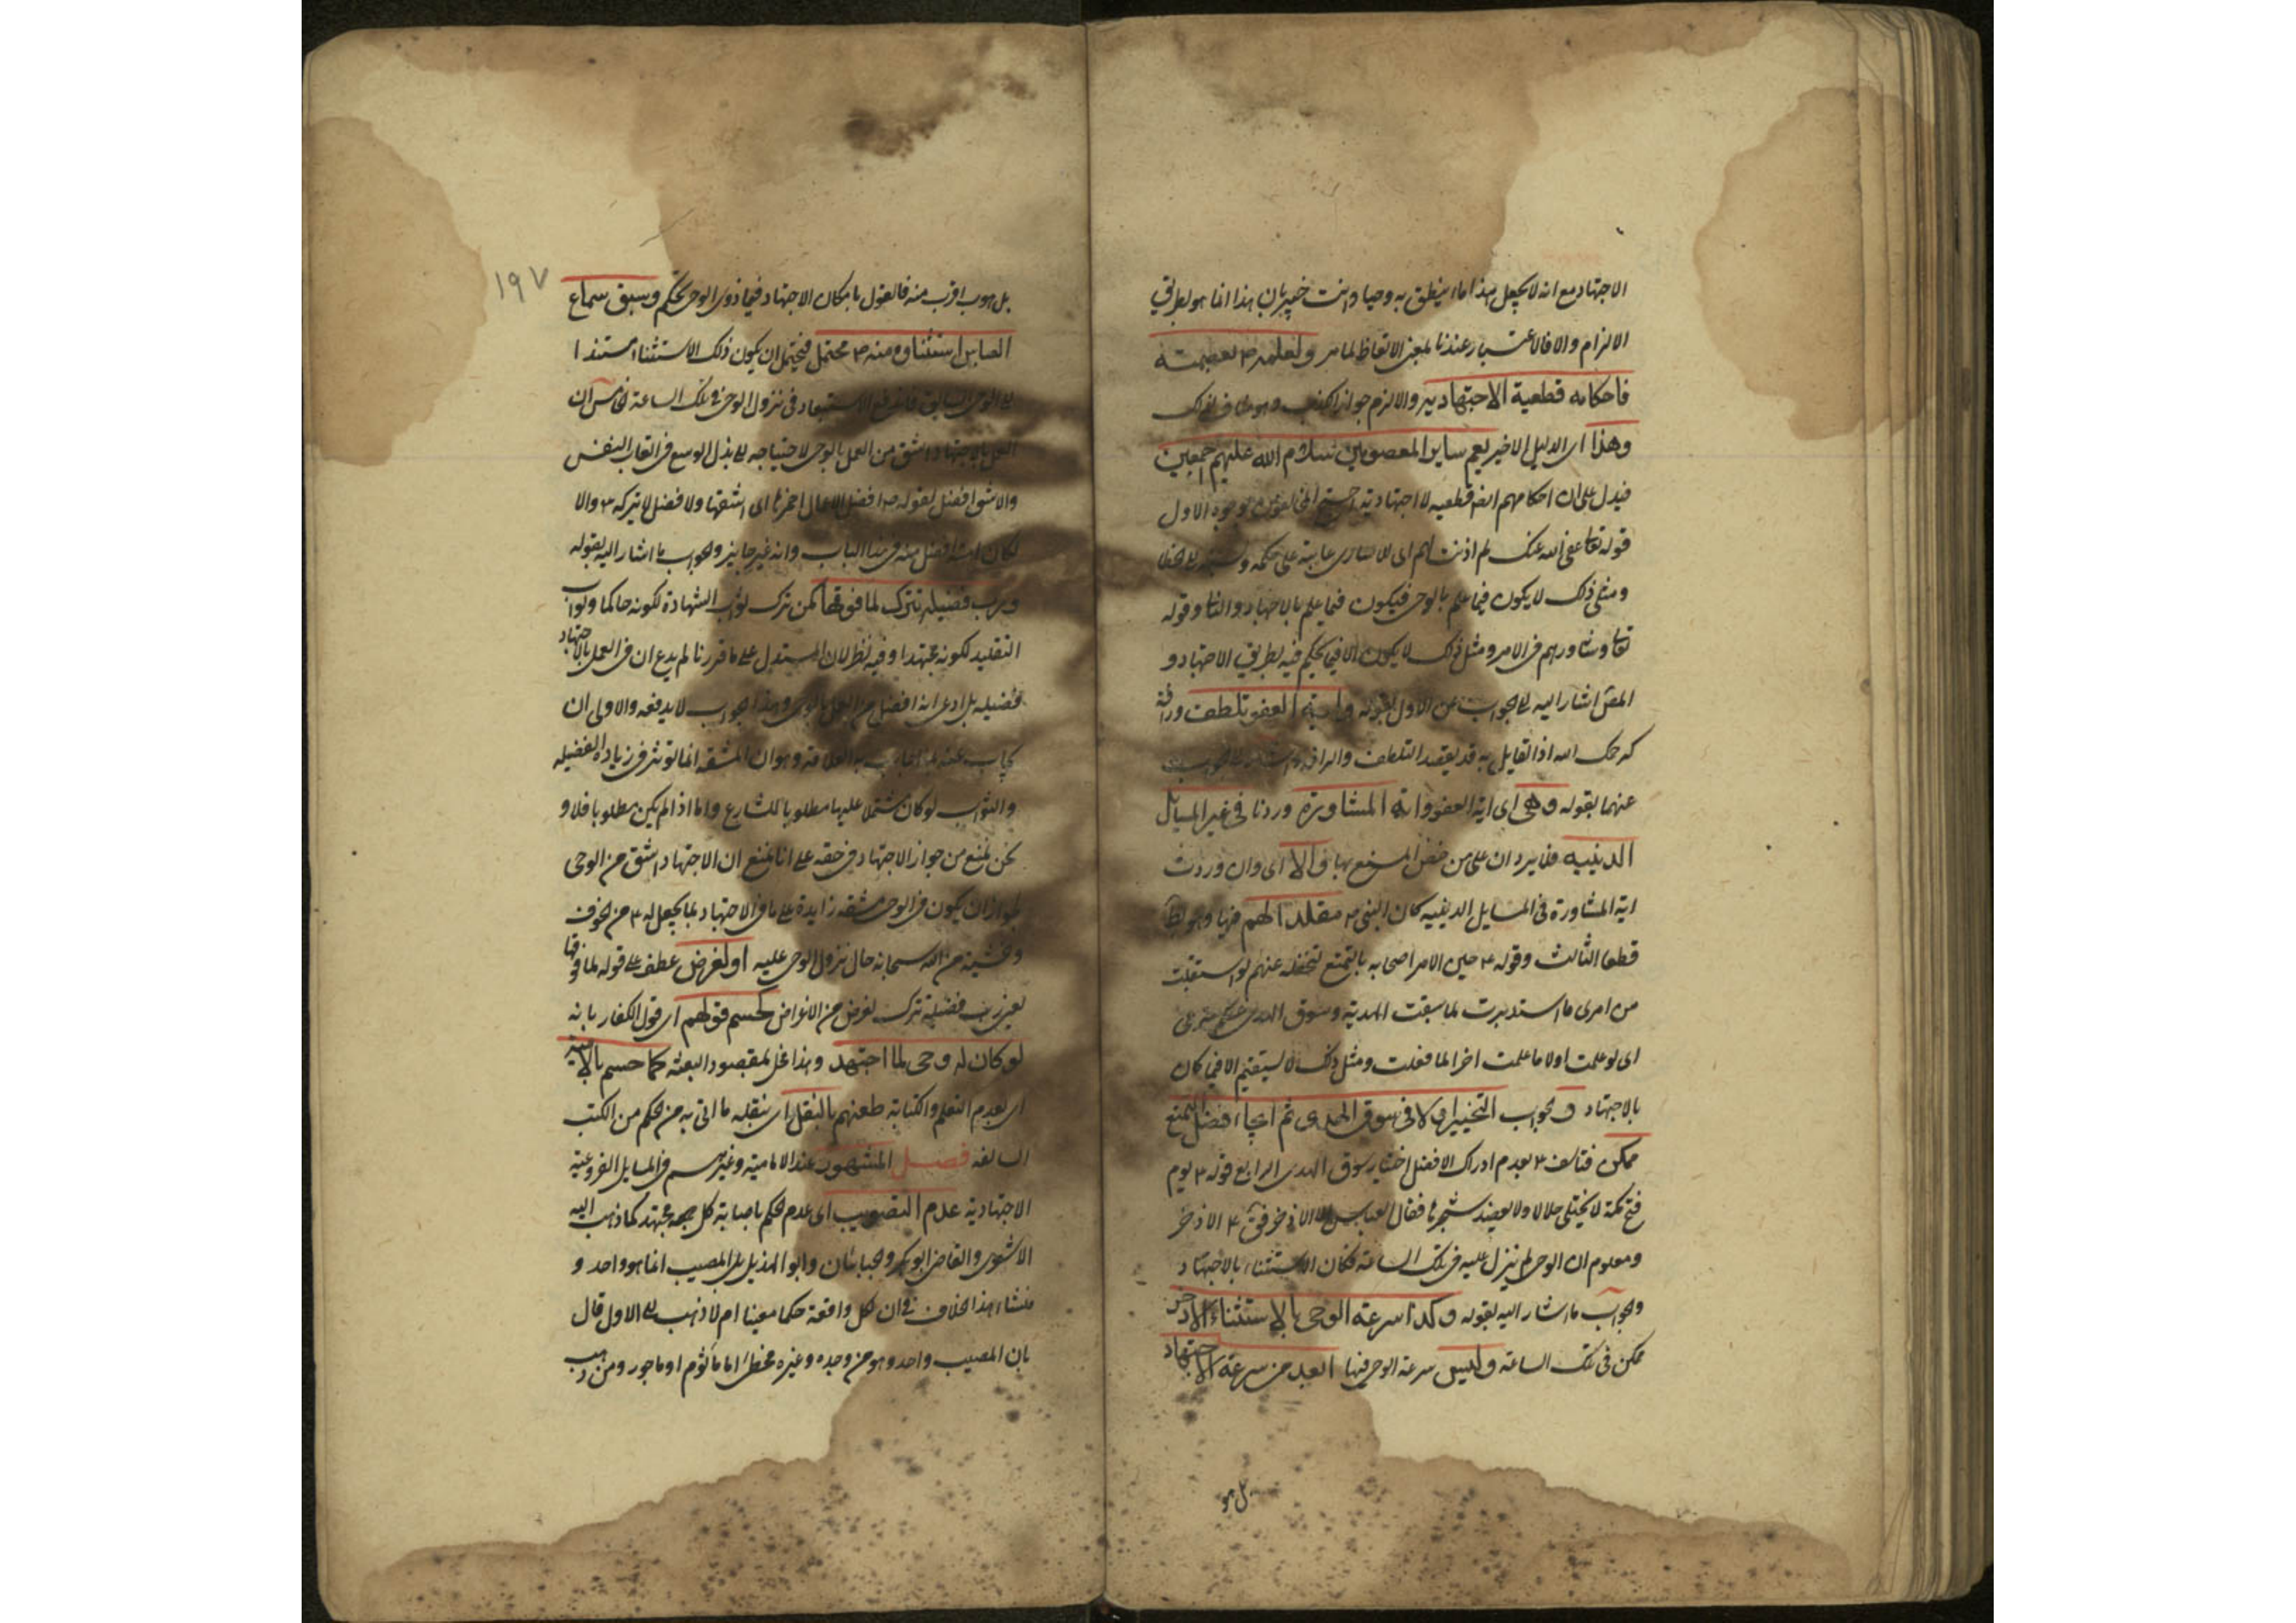 الاجتهاد مع انه لا يجعل بهذا ما ينطق به وحيا وانت خبير بان هذا انما هو بطريق
الالزام والا فالاعتبار عندنا بمعنى الالفاظ لما مر ولعلمه ٣ بعصمته
فاحكامه قطعية لا اجتهادية والا لزم جواز الكذب وهو مناف لذلك
وهذا اى الدليل الاخير يعم ساير المعصومين سلام الله عليهم اجمعين
فيدل على ان احكامهم ايضا قطعيه لا اجتهادية احتج المخالفون بوجوه الاول
قوله تعا عفى الله عنك لم اذنت لهم اى للاسارى عاتبه على حكمه ونسبه الى الخطا
ومثل ذلك لا يكون فيما علم بالوحى فيكون فيما علم بالاجتهاد والثانى قوله
تعا وشاورهم فى الامر ومثل ذلك لا يكون الا فيما يحكم فيه بطريق الاجتهاد و
المص اشار الى الجواب عن الاول بقوله واية العفو تلطف ورافة
كرحمك الله اذ القايل به قد يقصد التلطف والرافة واشار الى الجواب
عنهما بقوله وهى اى اية العفو واية المشاورة وردتا فى غير المسايل
الدينيه فلا يرد ان على من خص المنع بها والا اى وان وردت
اية المشاورة فى المسايل الدينيه كان النبى ٣ مقلدا لهم فيها وهو بط
قطعا الثالث وقوله ٣ حين الامر اصحابه بالتمتع لتخلفه عنهم لو استقبلت
من امرى ما استدبرت لما سقت الهدى وسوق الهدى
اى لو علمت اولا ما علمت اخرا لما فعلت ومثل ذلك لا يستقيم الا فيما كان
بالاجتهاد والجواب التخيير اولا فى سوق الهدى ثم ايجاء افضل التمتع
ممكن فتاسف ٣ بعدم ادراك الافضل اختيار سوق الهدى الرابع قوله ٣ يوم
فتح مكة لا يختلى خلالها ولا يعضد شجرها فقال العباس الا الاذخر فق ٣ الا الاذخر
ومعلوم ان الوحى لم ينزل عليه فى تلك الساعة فكان الاستثناء بالاجتهاد
والجواب ما اشار اليه بقوله وكذا سرعة الوحى بالاستثناء الاذخر
ممكن فى تلك الساعة وليس سرعة الوحى فيها ابعد من سرعة الاجتهاد
بل هو
١٩٧
بل هو اقرب منه فالقول بامكان الاجتهاد فيها دون الوحى تحكم وسبق سماع
العباس استثناؤه منه ٣ محتمل فيحتمل ان يكون ذلك الاستثناء مستندا
الى الوحى السابق فاندفع الاستبعاد فى نزول الوحى فى تلك الساعة الخامس ان
العمل بالاجتهاد اشق من العمل بالوحى لاحتياجه الى بذل الوسع فى اتعاب النفس
والاشق افضل لقوله ص افضل الاعمال احمزها اى اشقها والافضل لا يتركه ٣ والا
لكان امته افضل منه فى هذا الباب وانه غير جايز والجواب ما اشار اليه بقوله
ورب فضيله تترك لما فوقها كمن ترك ثواب الشهادة لكونه حاكما وثواب
التقليد لكونه مجتهدا وفيه نظر لان المستدل على ما قررنا لم يدع ان فى العمل بالاجتهاد
فضيله بل ادعى انه افضل من العمل بالوحى وهذا الجواب لا يدفعه والاولى ان
يجاب عنه بما اجاب به العلامة وهو ان المشقه انما توثر فى زيادة الفضيله
والثواب لو كان مشتملا عليها مطلوبا للشارع واما اذا لم يكن مطلوبا فلا و
نحن نمنع من جواز الاجتهاد فى حقه على انا نمنع ان الاجتهاد اشق من الوحى
لجواز ان يكون فى الوحى مشقه زايدة على ما فى الاجتهاد لما يجعل له ٣ من الخوف
وخشية من الله سبحانه حال نزول الوحى عليه او لغرض عطف على قوله لما فوقها
يعنى رب فضيلة تترك لغرض من الاغراض كحسم قولهم اى قول الكفار بانه
لو كان له وحى لما اجتهد وهذا مخل بمقصود البعثه كما حسم بالامية
اى بعدم التعلم والكتابة طعنهم بالنقل اى بنقله ما اتى به من الحكم من الكتب
السالفه فصل المشهور عند الامامية وغيرهم فى المسايل الفروعية
الاجتهادية عدم التصويب اى عدم الحكم باصابة كل مجتهد كما ذهب اليه
الاشعرى والقاضى ابو بكر والجبائيان وابو الهذيل بل المصيب انما هو واحد و
منشاء هذا الخلاف فى ان لكل واقعة حكما معينا ام لا ذهب الى الاول قال
بان المصيب واحد وهو من وجده وغيره مخطئ اما ماثوم او ماجور ومن ذهب